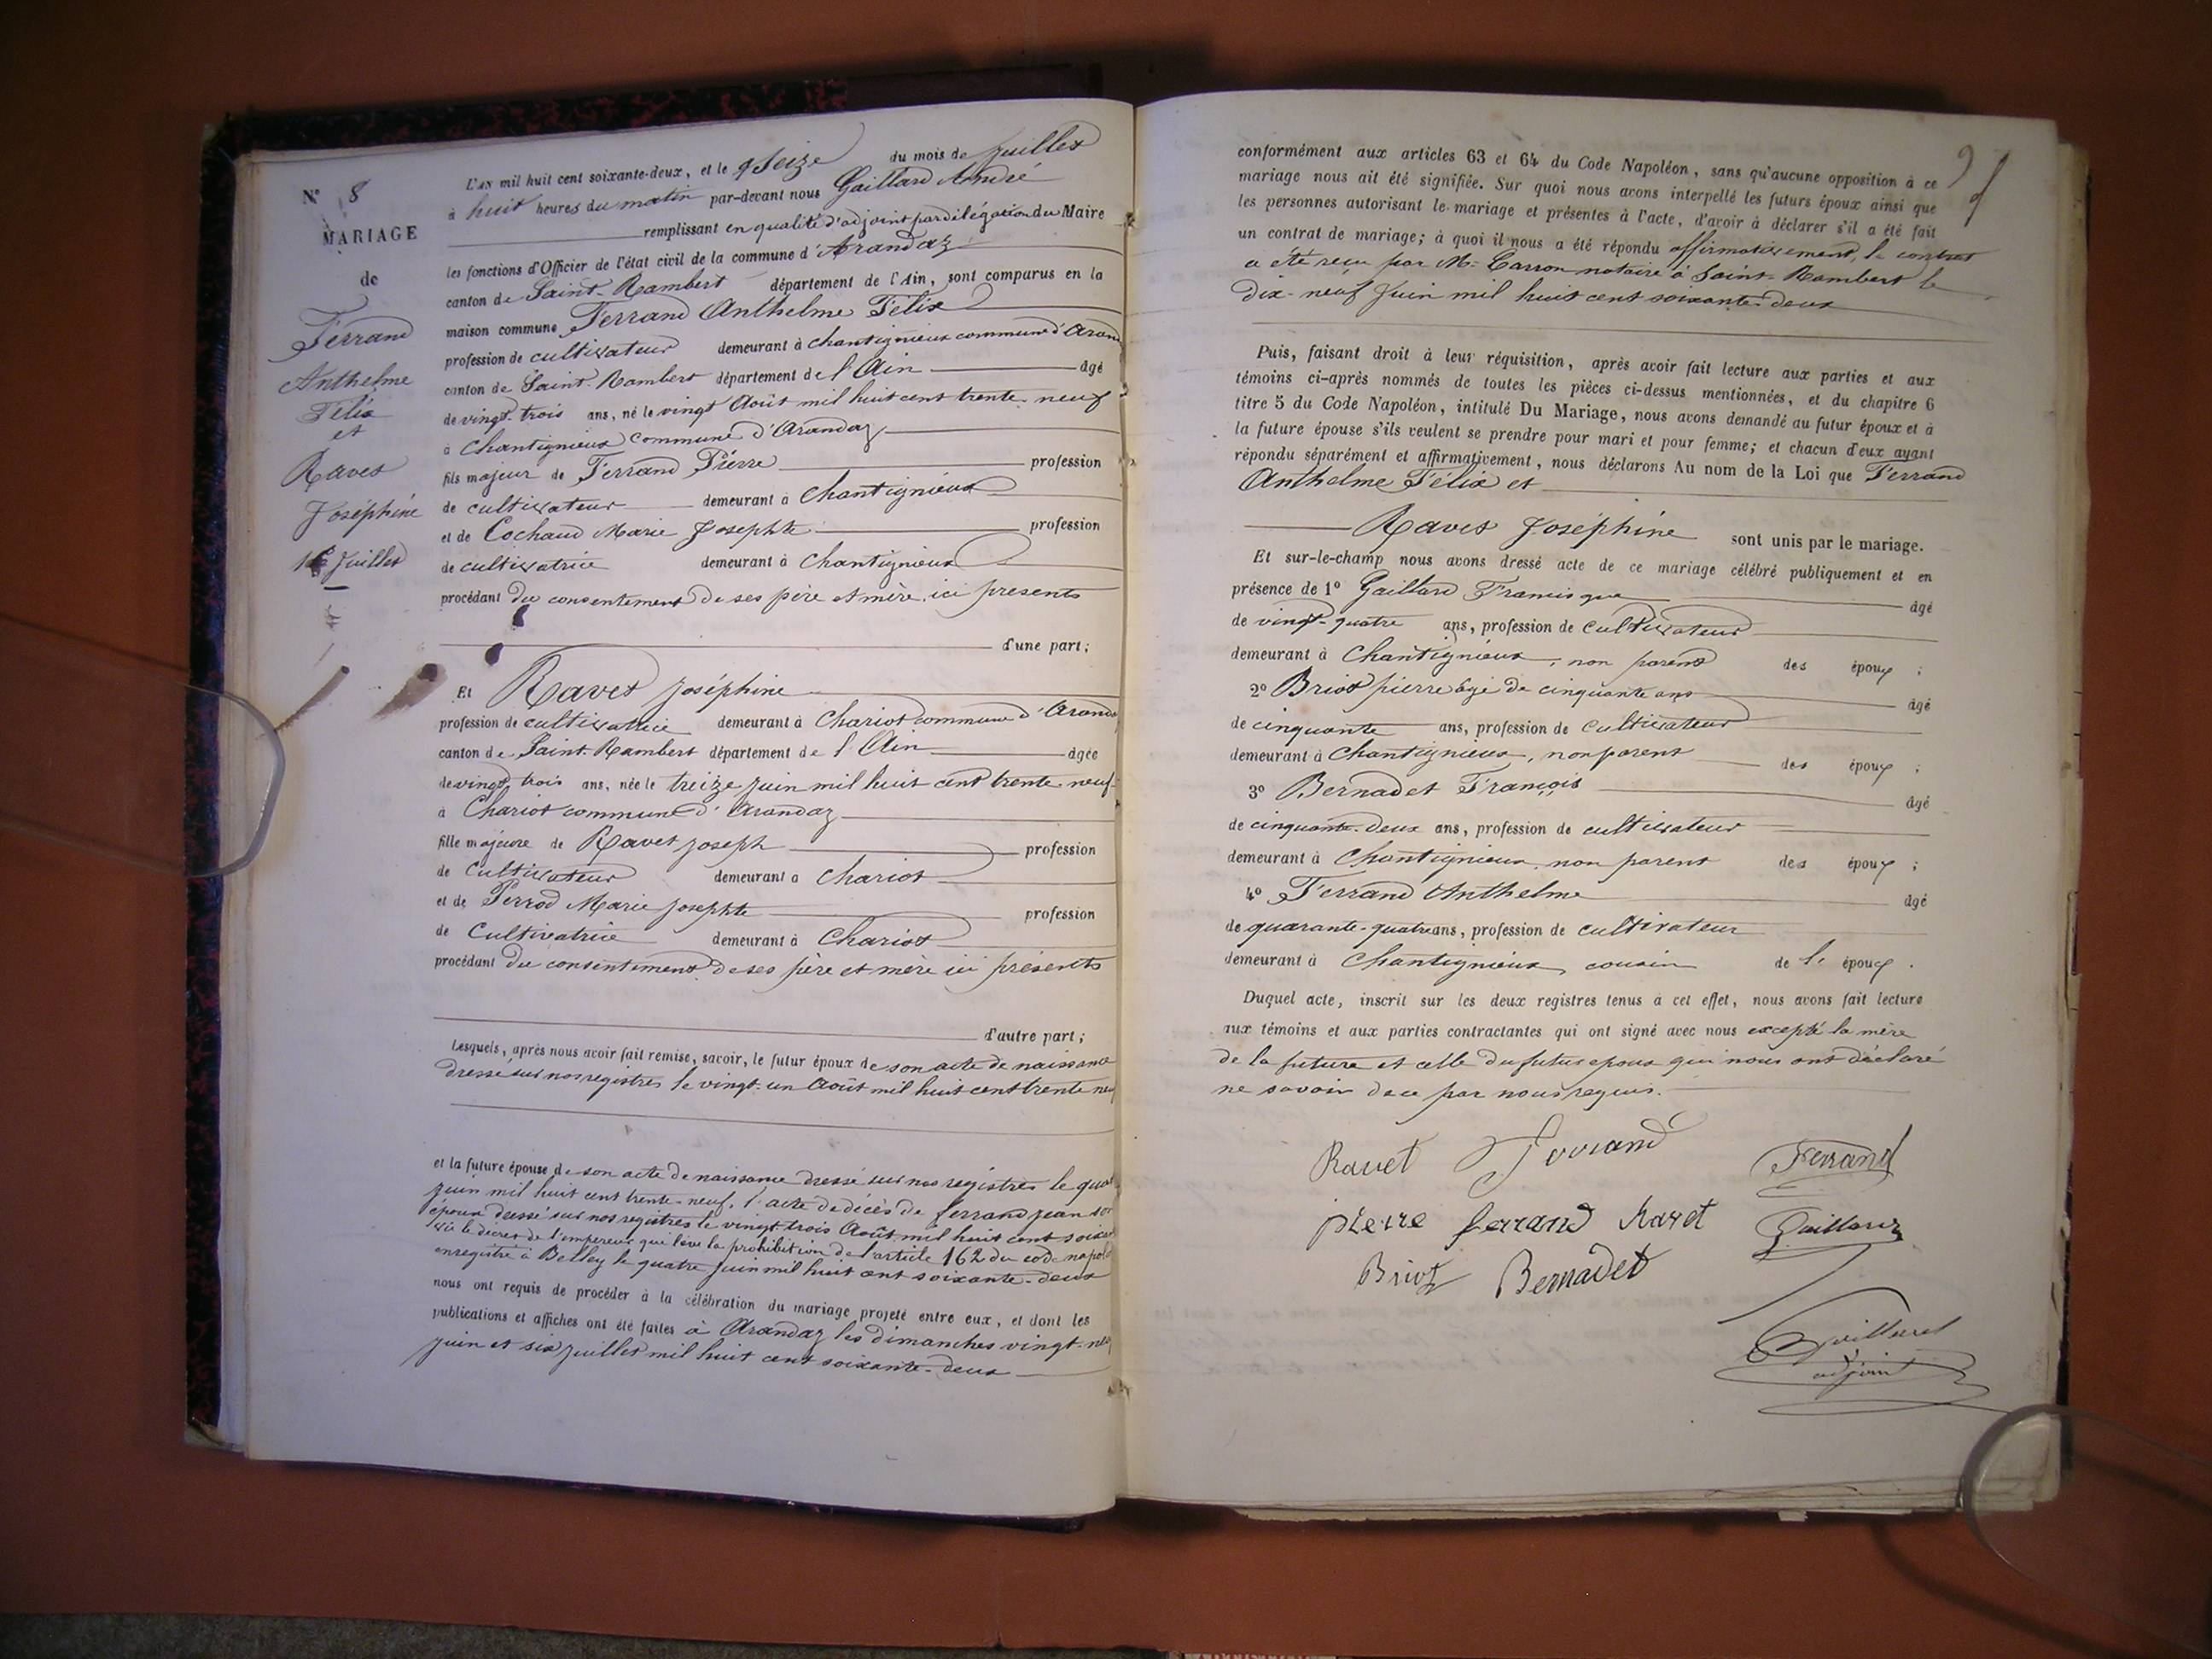 N° 8
MARIAGE
de
Ferrand
Anthelme
Félix
et
Ravet
Joséphine
16 Juillet
L'AN mil huit cent soixante-deux, et le seize du mois de Juillet
à huit heures du matin par-devant nous Gaillard André
remplissant en qualité d'adjoint par délégation du Maire
les fonctions d'Officier de l'état civil de la commune d'Arandaz
canton de Saint-Rambert département de l'Ain, sont comparus en la
maison commune Ferrand Anthelme Félix
profession de cultivateur demeurant à Chantignieux commune d'Arand
canton de Saint-Rambert département de l'Ain âgé
de vingt-trois ans, né le vingt Août mil huit cent trente neuf
à Chantignieux commune d'Arandaz
fils majeur de Ferrand Pierre profession
de cultivateur demeurant à Chantignieux
et de Cochaud Marie Josephte profession
de cultivatrice demeurant à Chantignieux
procédant du consentement de ses père et mère ici presents
d'une part;
Et Ravet Joséphine
profession de cultivatrice demeurant à Chariot commune d'Arand
canton de Saint-Rambert département de l'Ain âgée
de vingt trois ans, née le treize juin mil huit cent trente neuf
à Chariot commune d'Arandaz
fille majeure de Ravet Joseph profession
de Cultivateur demeurant à Chariot
et de Perrod Marie Josephte profession
de Cultivatrice demeurant à Chariot
procédant du consentement de ses père et mère ici présents
d'autre part;
Lesquels, après nous avoir fait remise, savoir, le futur époux de son acte de naissance
dressé sur nos registres le vingt-un Août mil huit cent trente neuf
et la future épouse de son acte de naissance dressé sur nos registres le quat
juin mil huit cent trente-neuf, l'acte de décès de ferrand jean
époux dressé sur nos registres le vingt trois Août mil huit cent soixan
vu le décret de l'empereur qui lève la prohibition de l'article 162 du code napol
enregistré à Belley le quatre juin mil huit cent soixante-deux
nous ont requis de procéder à la célébration du mariage projeté entre eux, et dont les
publications et affiches ont été faites à Arandaz les dimanches vingt-neuf
juin et six juillet mil huit cent soixante-deux
conformément aux articles 63 et 64 du Code Napoléon, sans qu'aucune opposition à ce
mariage nous ait été signifiée. Sur quoi nous avons interpellé les futurs époux ainsi que
les personnes autorisant le mariage et présentes à l'acte, d'avoir à déclarer s'il a été fait
un contrat de mariage; à quoi il nous a été répondu affirmativement, le contrat
a été reçu par Me Carron notaire à Saint-Rambert le
Dix-neuf Juin mil huit cent soixante-deux
Puis, faisant droit à leur réquisition, après avoir fait lecture aux parties et aux
témoins ci-après nommés de toutes les pièces ci-dessus mentionnées, et du chapitre 6
titre 5 du Code Napoléon, intitulé Du Mariage, nous avons demandé au futur époux et à
la future épouse s'ils veulent se prendre pour mari et pour femme; et chacun d'eux ayant
répondu séparément et affirmativement, nous déclarons Au nom de la Loi que Ferrand
Anthelme Félix et
Ravet Joséphine sont unis par le mariage.
Et sur-le-champ nous avons dressé acte de ce mariage célébré publiquement et en
présence de 1° Gaillard Francisque âgé
de vingt-quatre ans, profession de Cultivateur
demeurant à Chantignieux, non parent des époux ;
2° Briot pierre âgé de cinquante ans âgé
de cinquante ans, profession de Cultivateur
demeurant à Chantignieux, non parent des époux ;
3° Bernadet François âgé
de cinquante-deux ans, profession de cultivateur
demeurant à Chantignieux, non parent des époux ;
4° Ferrand Anthelme âgé
de quarante-quatre ans, profession de cultivateur
demeurant à Chantignieux, cousin de l' époux .
Duquel acte, inscrit sur les deux registres tenus à cet effet, nous avons fait lecture
aux témoins et aux parties contractantes qui ont signé avec nous excepté la mère
de la future et celle du futur epoux qui nous ont déclaré
ne savoir de ce par nous requis.
Ravet Ferrand Ferrand
pierre ferrand Ravet Gaillard
Briot Bernadet
Gaillard
adjoint